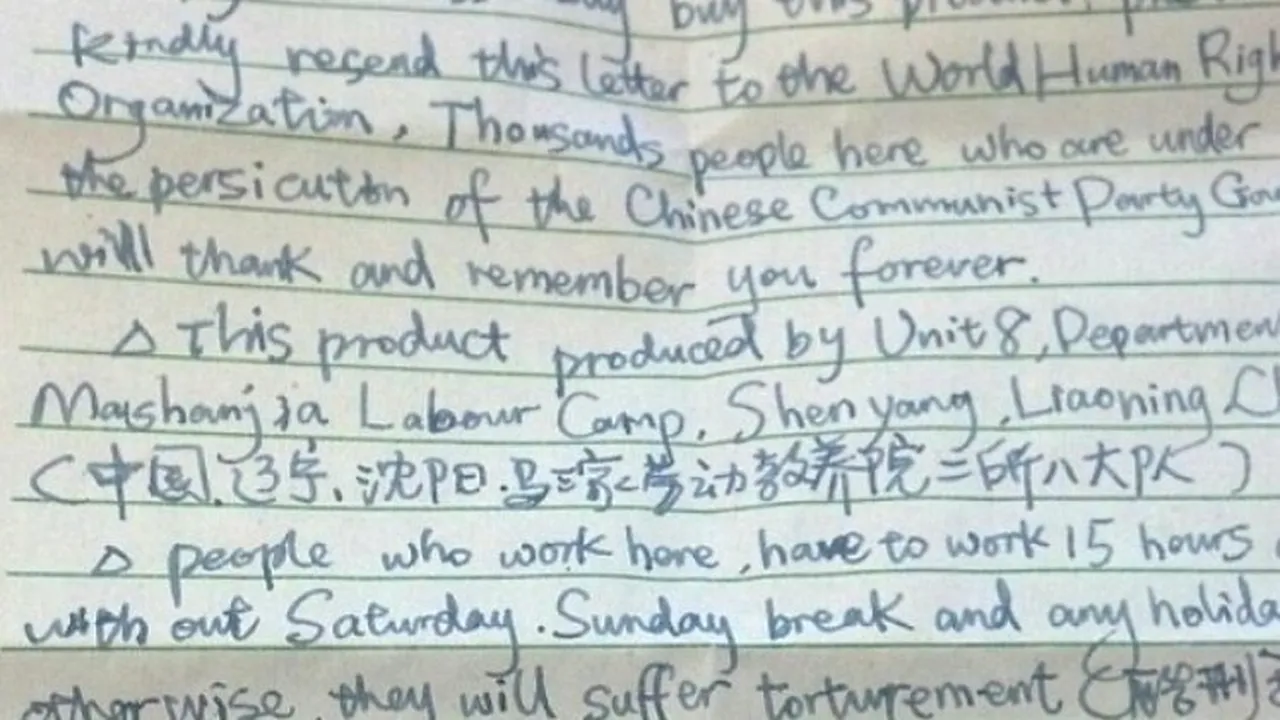 buy this product, 
kindly resend this letter to the World Human Righ
Organization, Thousands people here who are under
the persicution of the Chinese Communist Party Gov
will thank and remember you forever.
△ This product produced by Unit 8, Departmen
Mashanjia Labour Camp, Shenyang, Liaoning Ch
(中国.辽宁.沈阳.马三家劳动教养院二所八大队)
△ people who work here, have to work 15 hours
with out Saturday. Sunday break and any holida
otherwise, they will suffer torturement (